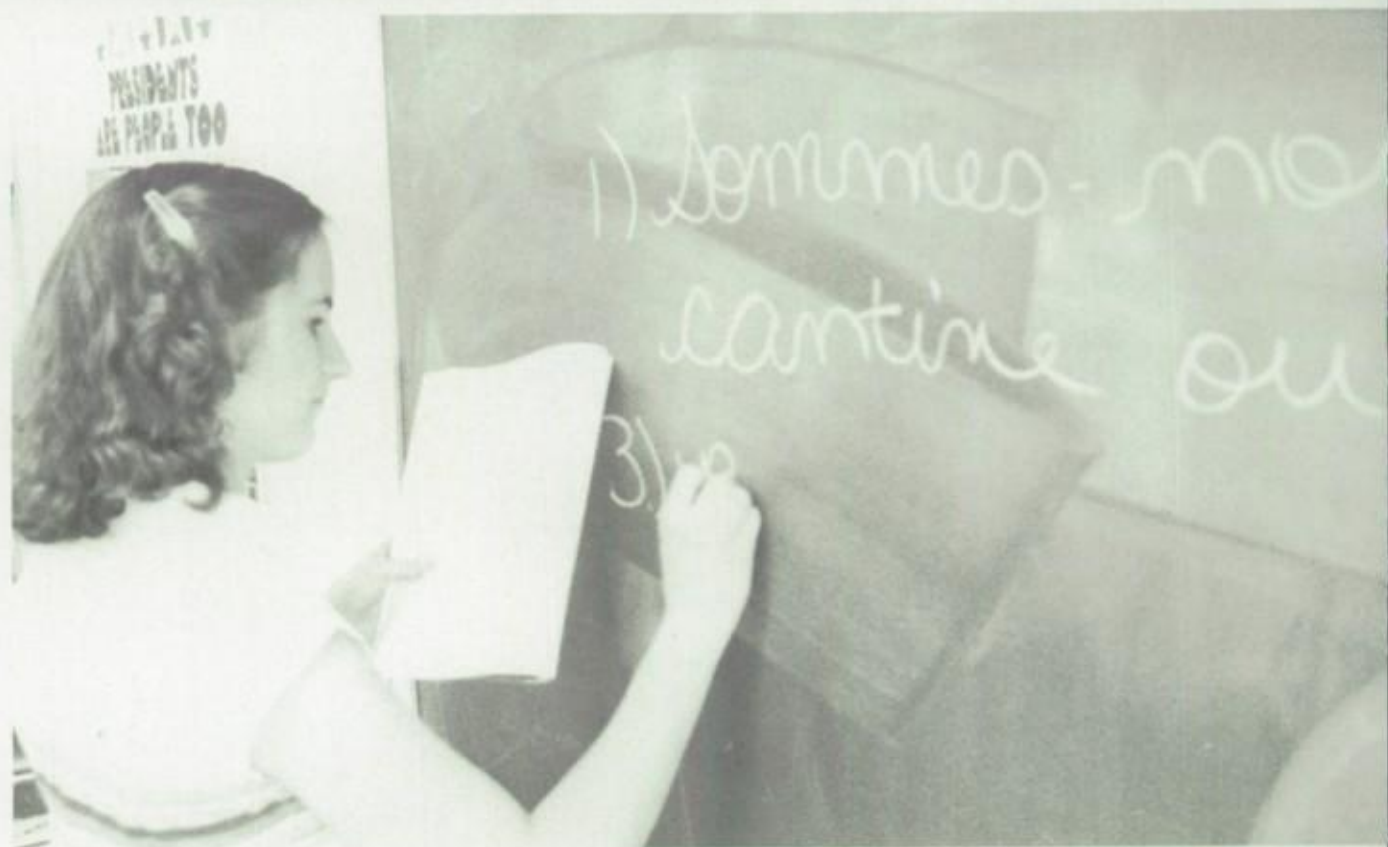 PRESIDENTS
ARE PEOPLE TOO
1) Sommes-no
cantine ou
3)